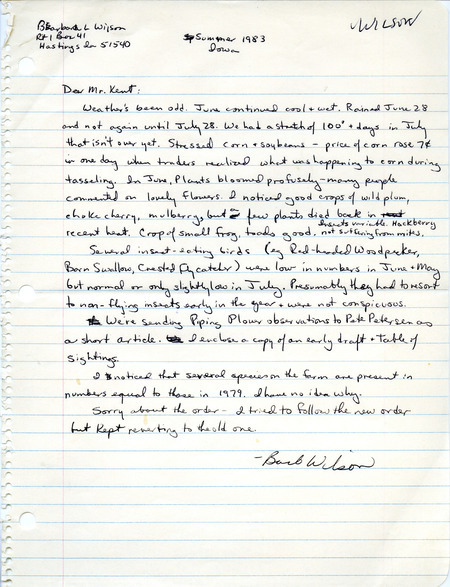 Barbara L Wilson
Rt 1 Box 41
Hastings Ia 51540
Summer 1983
Iowa
WILSON
Dear Mr. Kent:
Weather's been odd. June continued cool + wet. Rained June 28
and not again until July 28. We had a stretch of 100° + days in July
that isn't over yet. Stressed corn + soybeans - price of corn rose 7¢
in one day when traders realized what was happening to corn during
tasseling. In June, Plants bloomed profusely - many people
commented on lovely flowers. I noticed good crops of wild plum,
choke cherry, mulberry, but a few plants died back in
recent heat. Crop of small frog, toads good. Insects variable. Hackberry
not suffering from mites.
Several insect-eating birds (eg Red-headed Woodpecker,
Barn Swallow, Crested flycatcher) were low in numbers in June + May
but normal or only slightly low in July. Presumably they had to resort
to non-flying insects early in the year + were not conspicuous.
We're sending Piping Plover observations to Pete Petersen as
a short article. I enclose a copy of an early draft + Table of
Sightings.
I noticed that several species on the farm are present in
numbers equal to those in 1979. I have no idea why.
Sorry about the order - I tried to follow the new order
but kept reverting to the old one.
- Barb Wilson